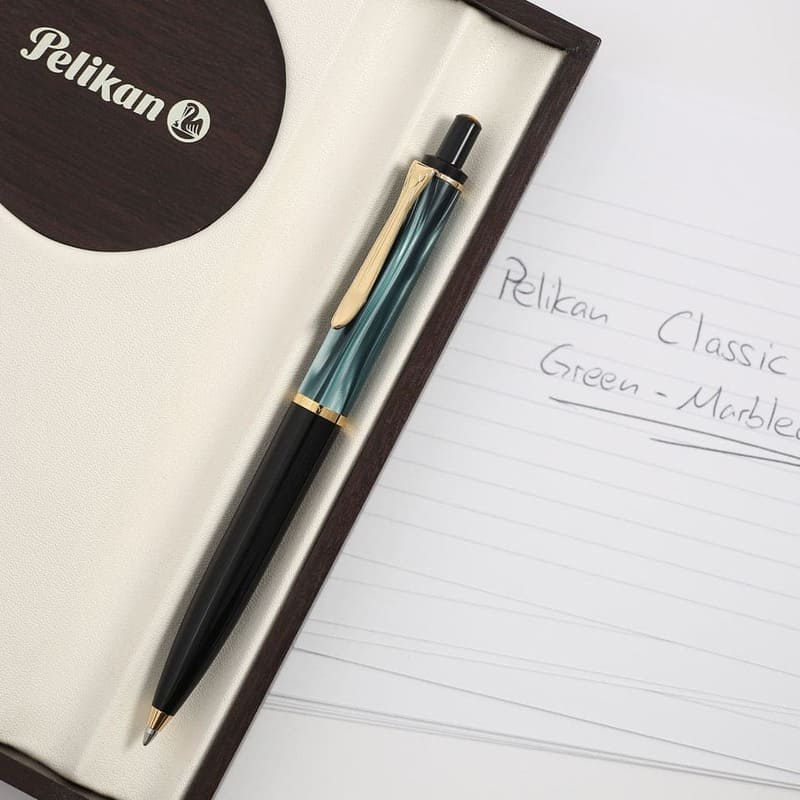 Pelikan
Pelikan Classic
Green - Marbled